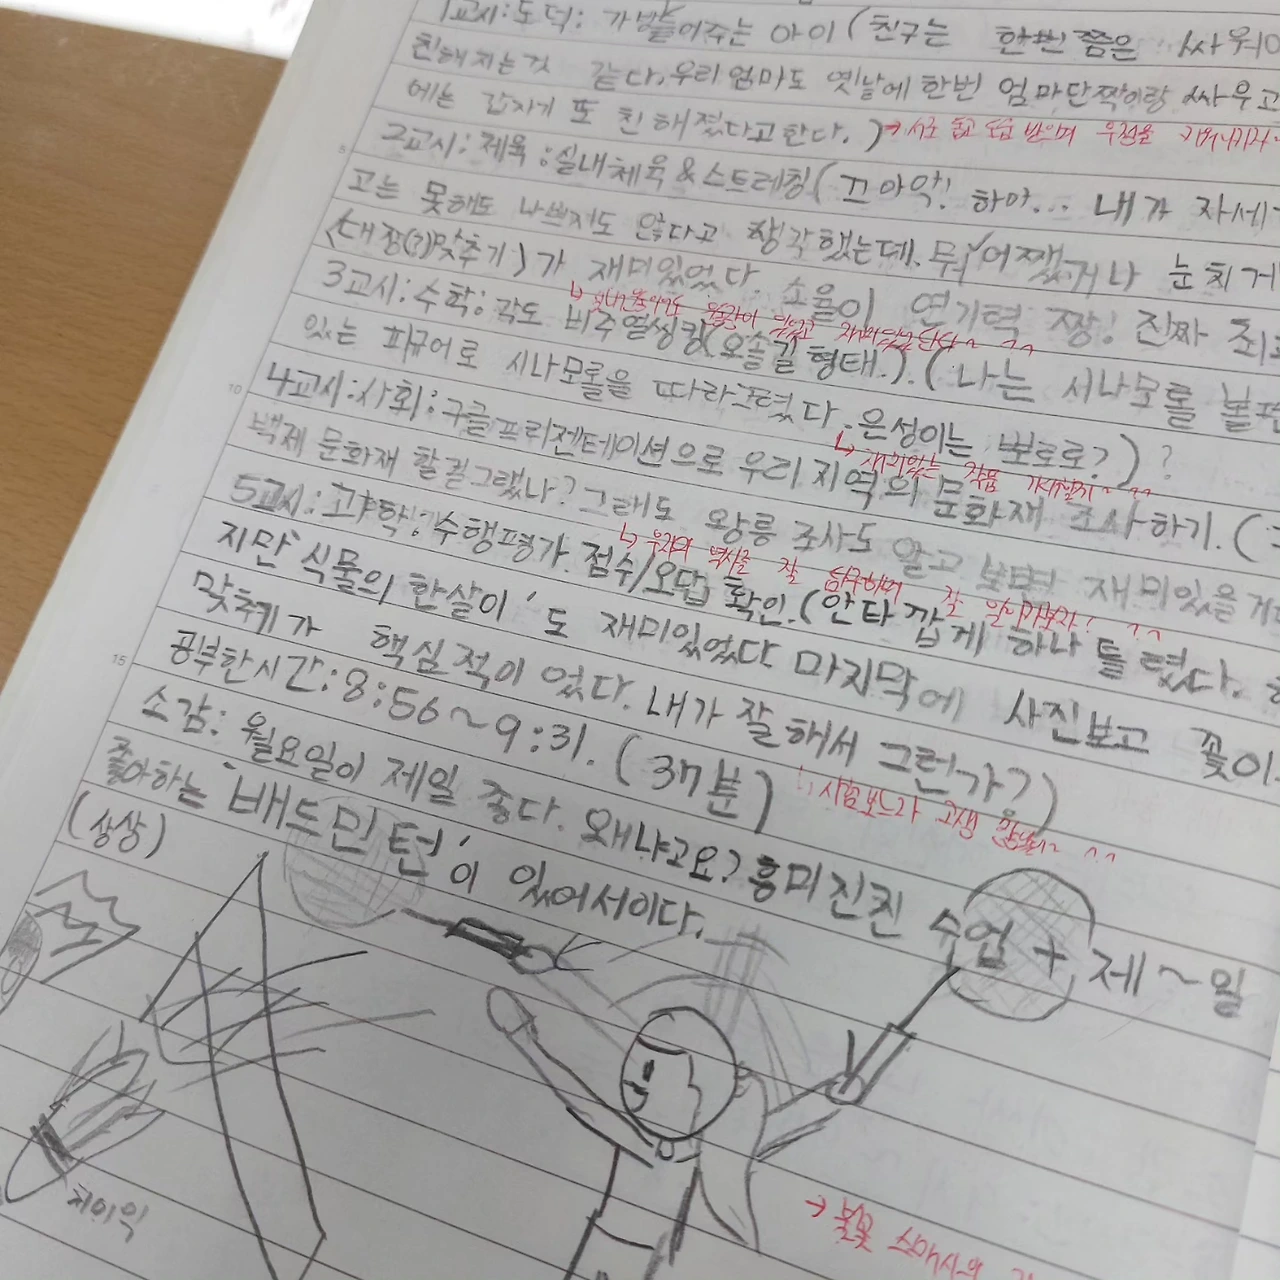 1교시:도덕: 가방들어주는 아이(친구는 한번쯤은 싸워야
친해지는것 같다. 우리엄마도 옛날에 한번 엄마단짝이랑 싸우고
에는 갑자기 또 친해졌다고한다.)→서로 돕고 도움 받으며 우정을
2교시:체육:실내체육&스트레칭(끄아악! 하아... 내가 자세
고는 못해도 나쁘지도 않다고 생각했는데. 뭐 어쨌거나 눈치게
<대장(?)맞추기>가 재미있었다. 소율이 연기력 짱! 진짜 최
3교시:수학:각도 비주얼씽킹(오솔길 형태.).(나는 시나모롤 볼펜
있는 피규어로 시나모롤을 따라그렸다. 은성이는 뽀로로?)?
↳재미있는 작품 ^^
4교시:사회:구글프리젠테이션으로 우리지역의 문화재 조사하기.(
백제 문화재 할걸그랬나? 그래도 왕릉 조사도 알고 보면 재미있을
↳우리의 역사를 잘 잘 ^^
5교시:과학:수행평가 점수/오답 확인.(안타깝게 하나 틀렸다.
지만 '식물의 한살이'도 재미있었다 마지막에 사진보고 꽃이
맞추기가 핵심적이었다. 내가 잘해서 그런가?)
공부한시간:8:56~9:31.(37분)
↳시험보느라 고생 ^^
소감: 월요일이 제일 좋다. 왜냐고요? 흥미진진 수업 + 제~일
좋아하는 '배드민턴'이 있어서이다.
(상상)
치이익
→불꽃 스매시의